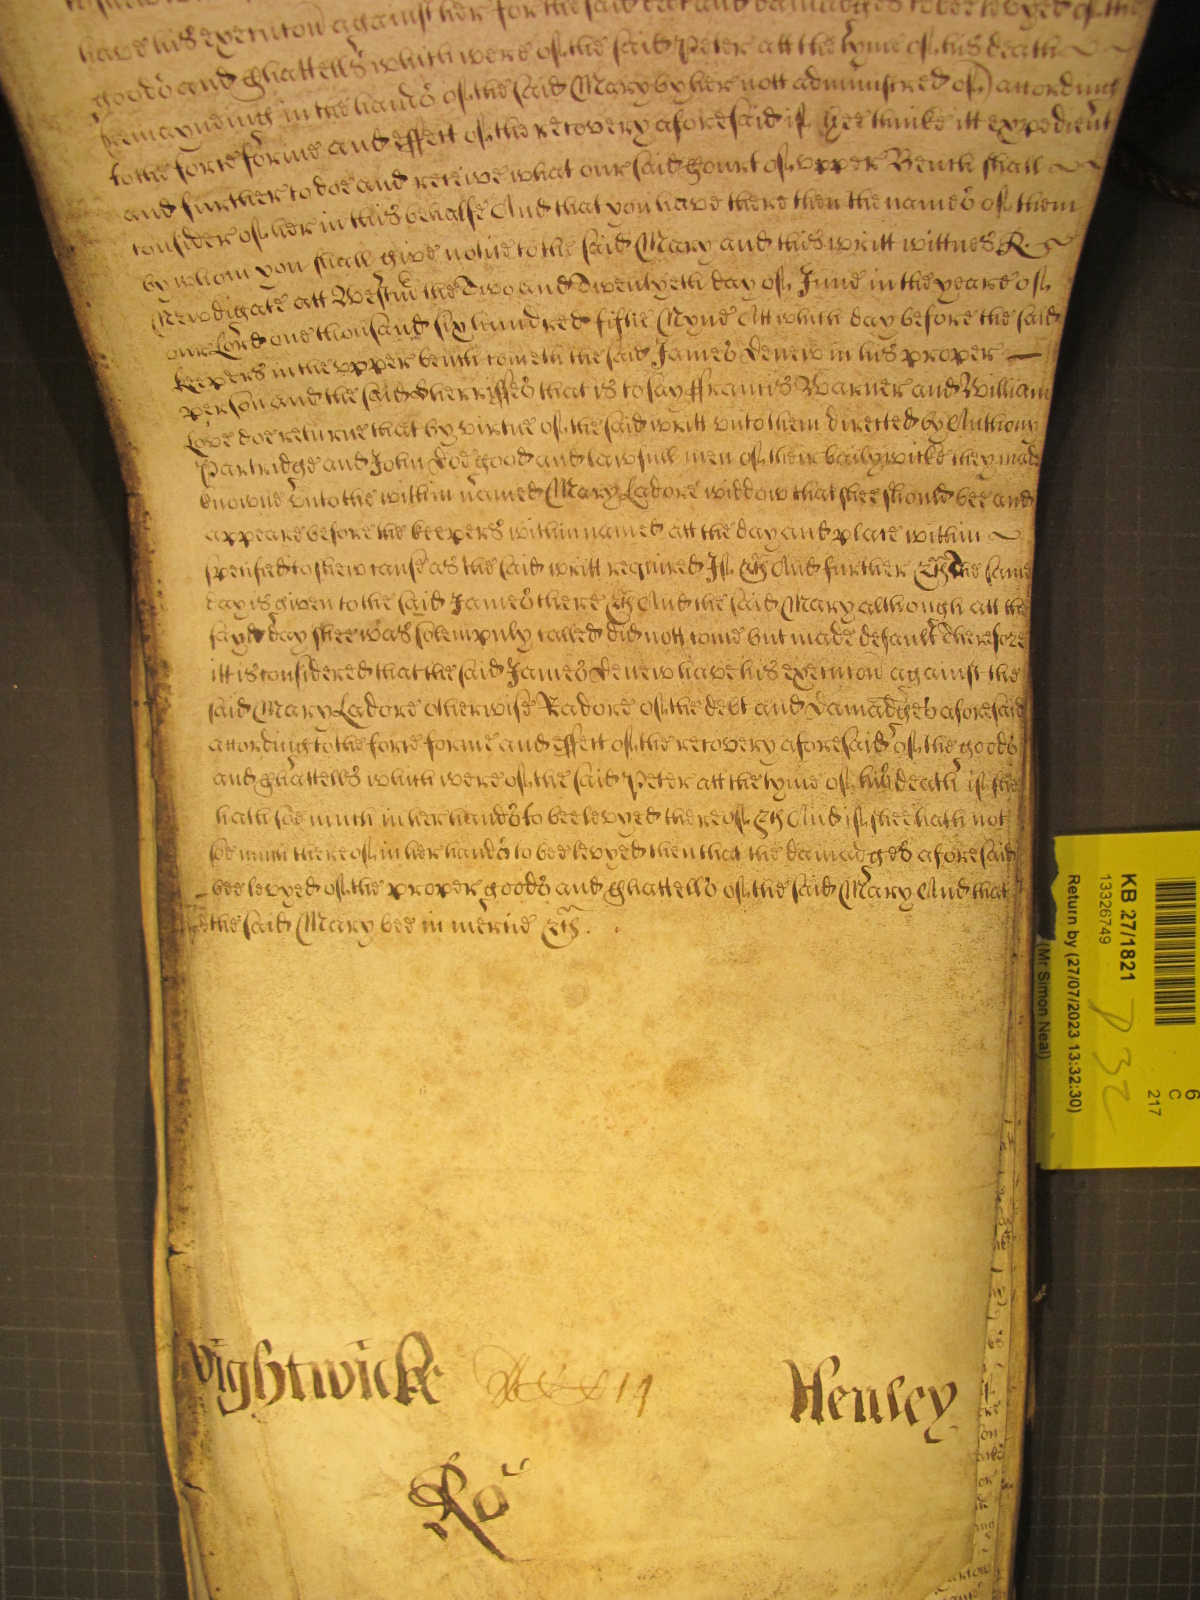 have his execucion against her for the said debt and damadges to bee levyed of the
goods and Chattells which were of the said Peter att the tyme of his death
remayneing in the hands of the said Mary by her nott administred of) according
to the force forme and effect of the recovery aforesaid if hee thinke itt expedient
and further to doe and receive what our said Court of upper Bench shall
consider of her in this behalfe And that you have there then the names of them
by whom you shall give notice to the said Mary and this writt wittnes R.
Newdigate att Westm the Two and Twentyeth day of June in the yeare of
our Lord one thousand six hundred fiftie Nyne Att which day before the said
keepers in the upper bench cometh the said James Denew in his proper
person and the said Sherriffes that is to say ffrancis Warner and William
Love doe returne that by virtue of the said writt unto them directed by Anthony
Partridge and John Doe good and lawfull men of their bailywicke they made
knowne unto the within named Mary Ladore widdow that shee should bee and
appeare before the keepers within named att the day and place within
specified to shew cause as the said writt required If &c And further &c the same
day is given to the said James there &c And the said Mary although att the
sayd day shee was solempnly called did nott come but made default Therefore
itt is considered that the said James Denew have his execucion against the
said Mary Ladore otherwise Radore of the debt and damadges aforesaid
according to the force forme and effect of the recovery aforesaid of the goods
and Chattells which were of the said Peter att the tyme of his death if shee
hath soe much in her hands to bee levyed thereof &c And if shee hath not
soe much thereof in her hands to bee levyed then that the damadges aforesaid
bee levyed of the proper goods and Chattells of the said Mary And that
the said Mary bee in mercie &c.
Wightwicke
Henley
Ro
KB 27/1821
13326749
Return by (27/07/2023 13:32:30)
(Mr Simon Neal)
6
C
217
D 32